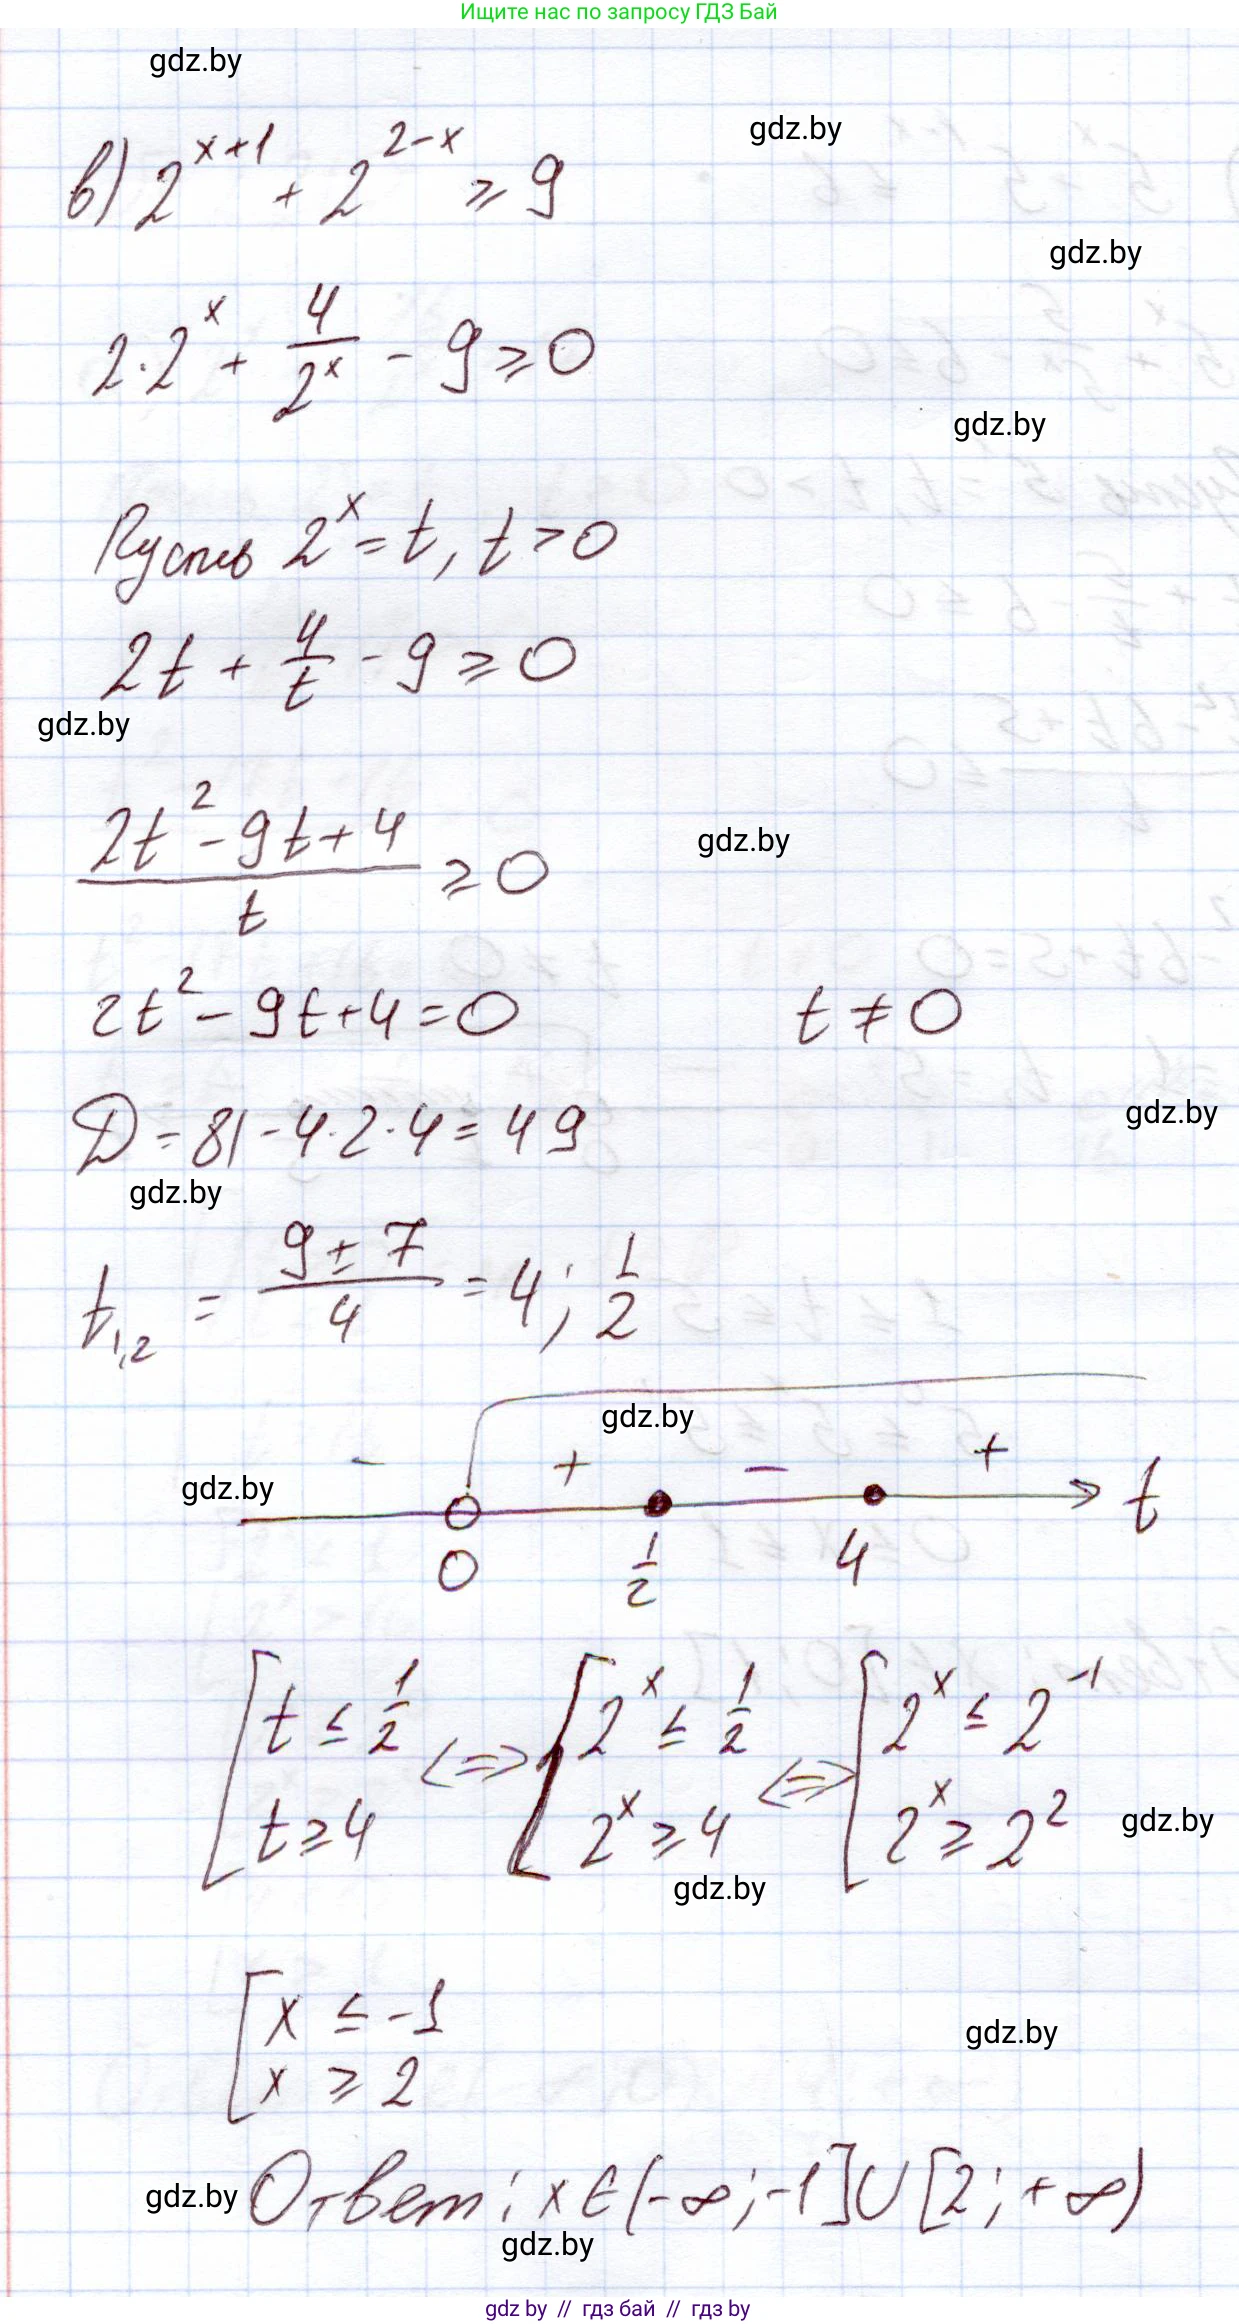 Ищите нас по запросу ГДЗ Бай
gdz.by
gdz.by
в) 2^{x+1} + 2^{2-x} ≥ 9
gdz.by
2·2^x + 4/2^x - 9 ≥ 0
gdz.by
Пусть 2^x = t, t > 0
2t + 4/t - 9 ≥ 0
gdz.by
(2t^2 - 9t + 4)/t ≥ 0
gdz.by
2t^2 - 9t + 4 = 0 t ≠ 0
D = 81 - 4·2·4 = 49
gdz.by
gdz.by
t_{1,2} = (9 ± 7)/4 = 4; 1/2
gdz.by
- + - +
gdz.by
t
0 1/2 4
[ t ≤ 1/2 <=> [ 2^x ≤ 1/2 <=> [ 2^x ≤ 2^{-1}
t ≥ 4 2^x ≥ 4 2^x ≥ 2^2
gdz.by
gdz.by
[ x ≤ -1
gdz.by
x ≥ 2
gdz.by
Ответ: x ∈ (-∞; -1] ∪ [2; +∞)
gdz.by
gdz by // гдз бай // гдз by